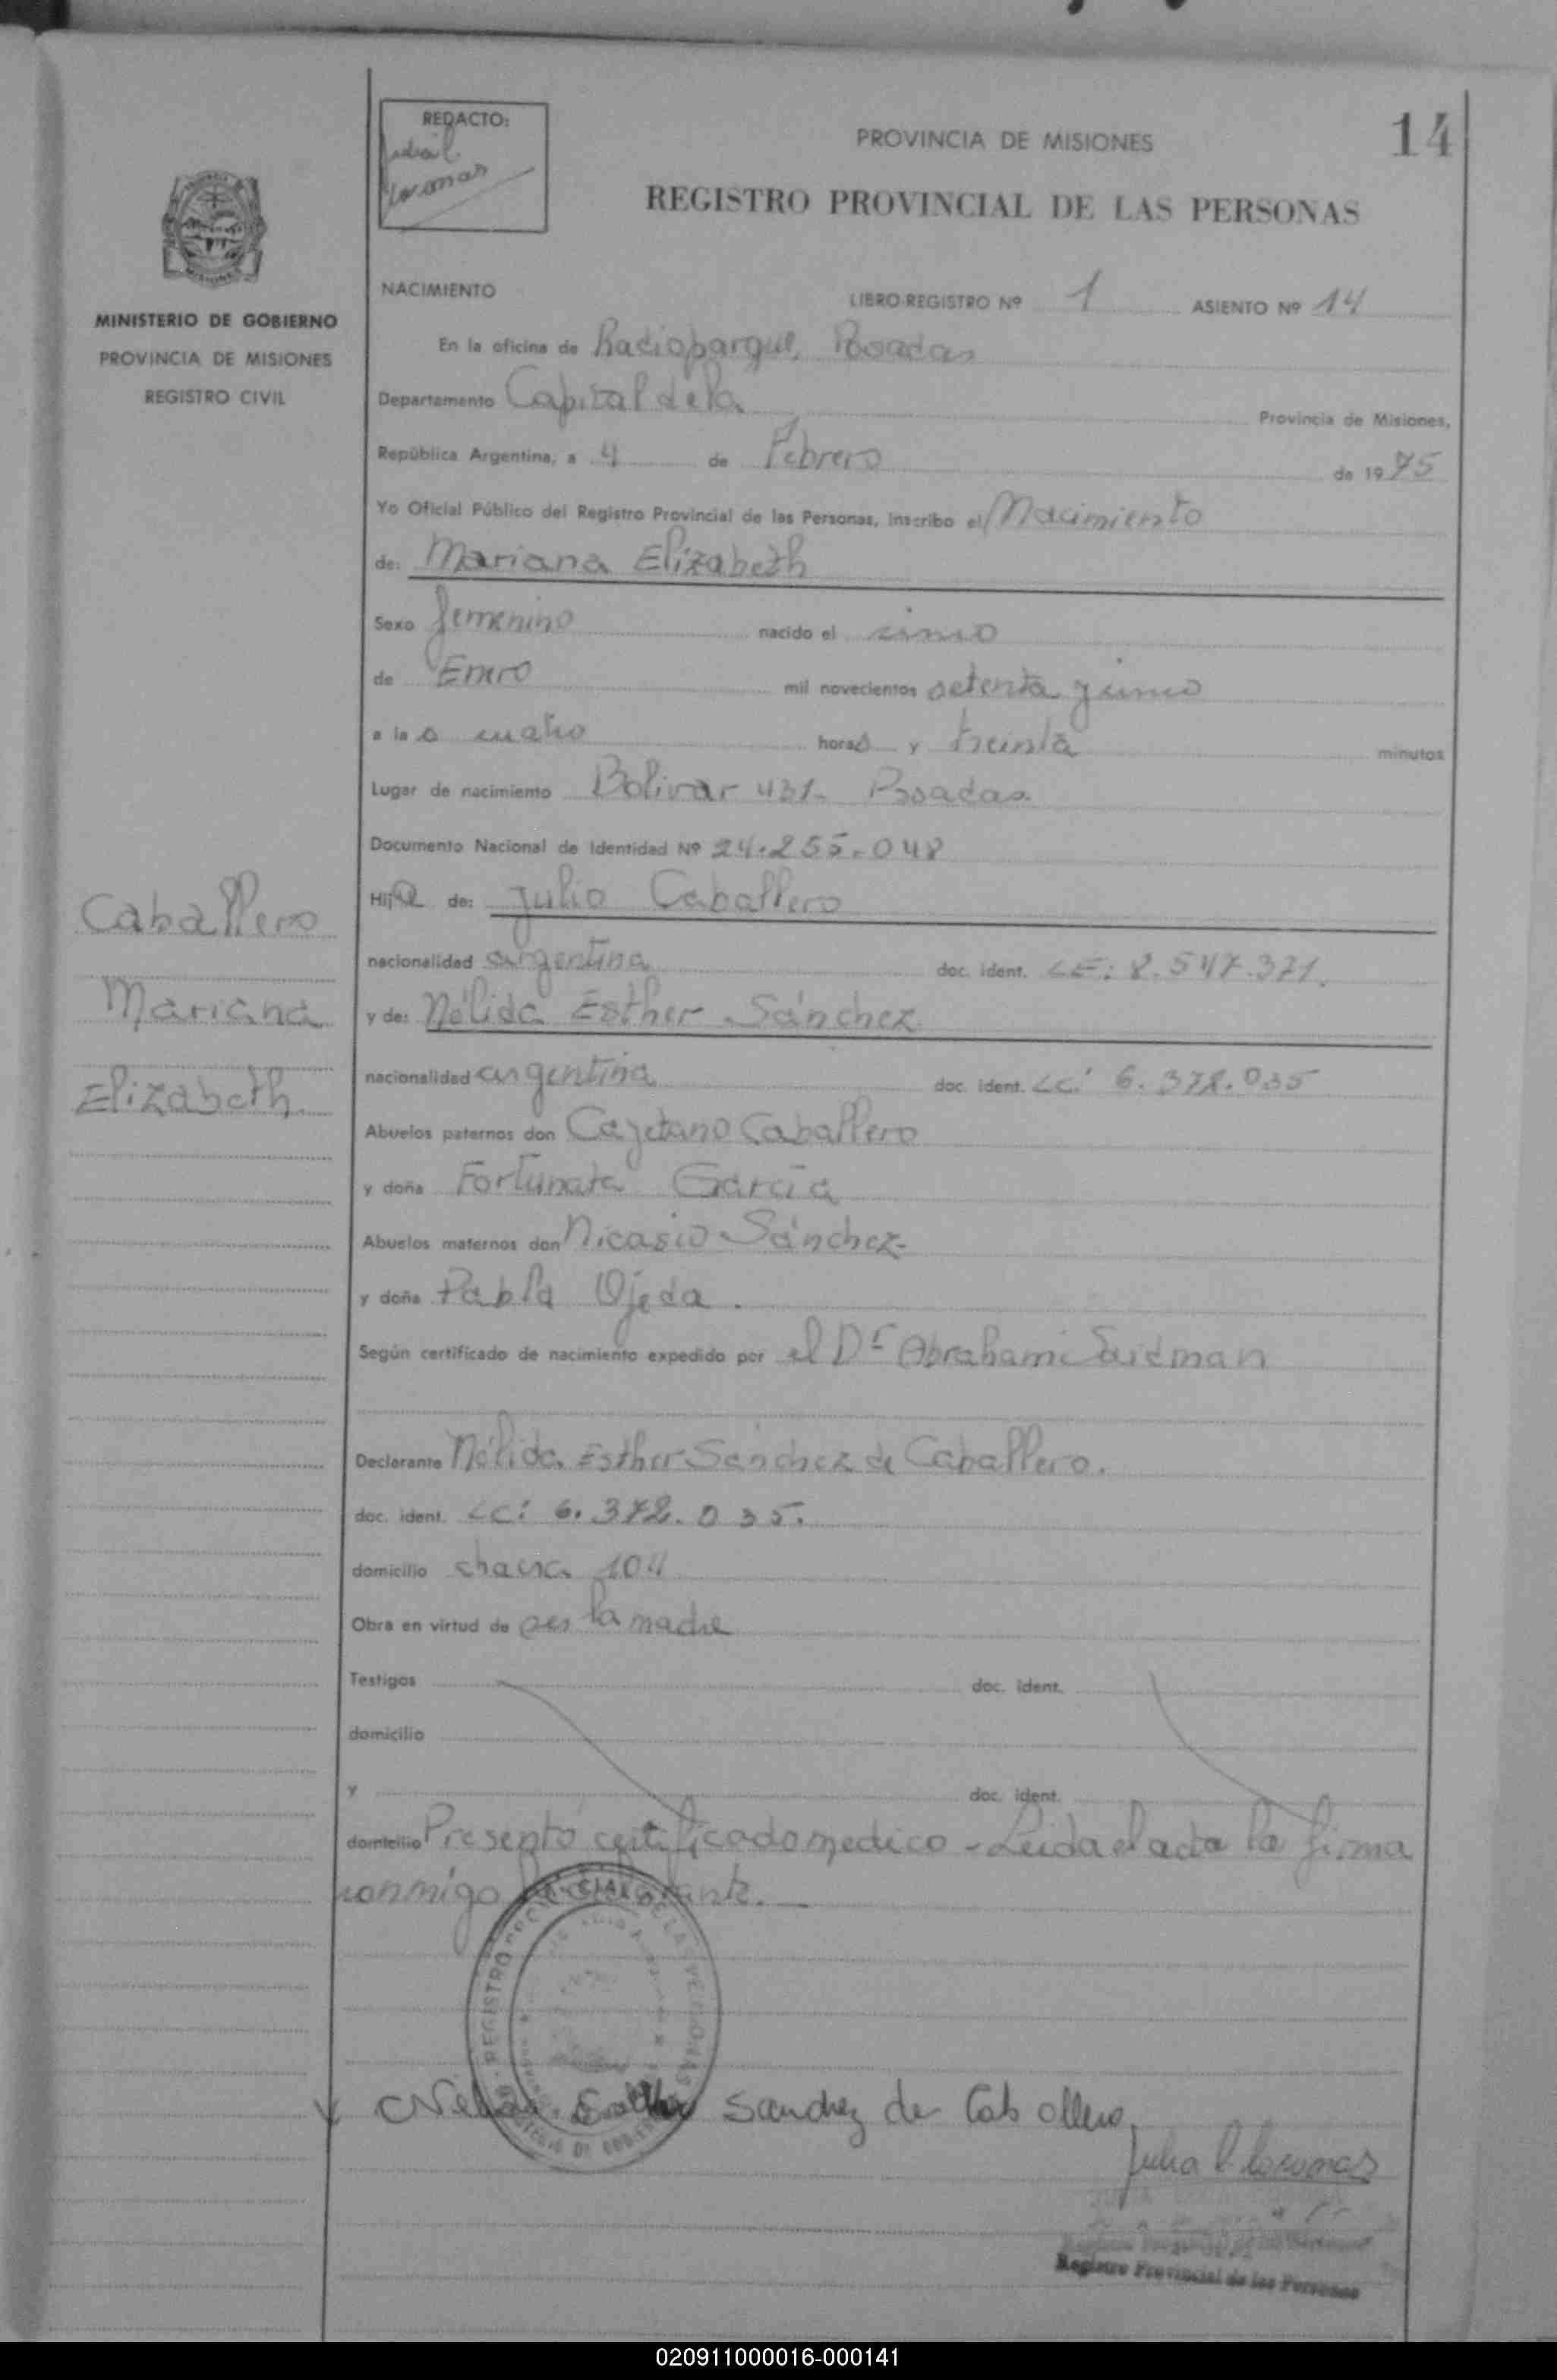 14
REDACTO:
PROVINCIA DE MISIONES
REGISTRO PROVINCIAL DE LAS PERSONAS
MINISTERIO DE GOBIERNO
PROVINCIA DE MISIONES
REGISTRO CIVIL
NACIMIENTO LIBRO REGISTRO Nº 1 ASIENTO Nº 14
En la oficina de Radioparque, Posadas
Departamento Capital de la Provincia de Misiones,
República Argentina, a 4 de Febrero de 1975
Yo Oficial Público del Registro Provincial de las Personas, inscribo el Nacimiento
de: Mariana Elizabeth
Sexo femenino nacido el cinco
de Enero mil novecientos setenta y cinco
a las cuatro horas y treinta minutos
Lugar de nacimiento Bolivar 431- Posadas.
Documento Nacional de Identidad Nº 24.255.048
Hija de: Julio Caballero
nacionalidad argentina doc. ident. LE: 8.547.371.
y de: Nélida Esther Sánchez
nacionalidad argentina doc. ident. LC: 6.372.035
Abuelos paternos don Cayetano Caballero
y doña Fortunata García
Abuelos maternos don Nicasio Sánchez-
y doña Pabla Ojeda.
Según certificado de nacimiento expedido por el Dr Abraham Saidman
Declarante Nélida Esther Sánchez de Caballero.
doc. ident. LC: 6.372.035.
domicilio chacra 104
Obra en virtud de ser la madre
Testigos doc. ident.
domicilio
y doc. ident.
domicilio Presentó certificado medico - Leida el acta la firma
conmigo la declarante.
Caballero
Mariana
Elizabeth.
Nelida Esther Sanchez de Caballero
Julia
Registro Provincial de las Personas
020911000016-000141